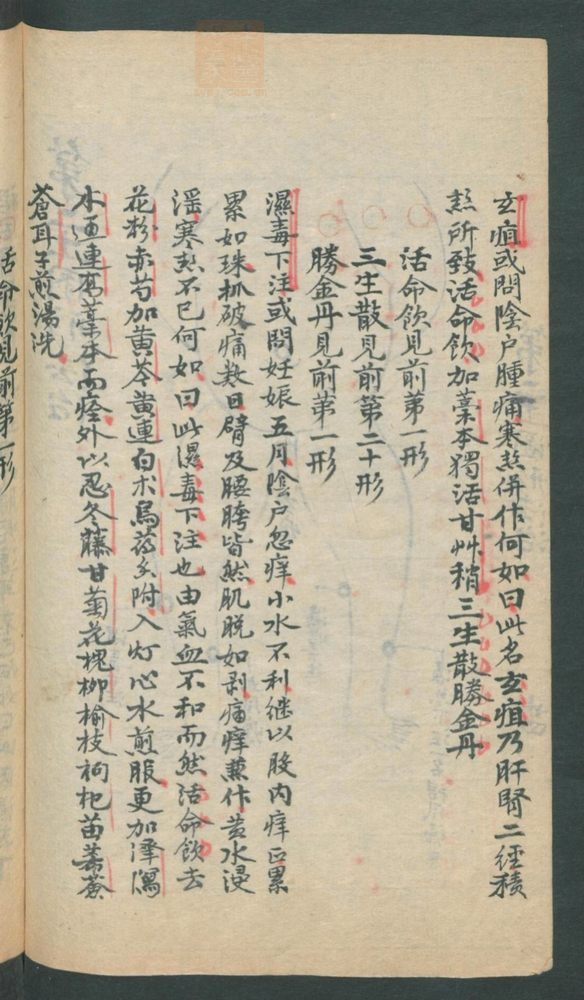 玄疽或問陰户腫痛寒熱併作何如曰此名玄疽乃肝腎二經積
熱所致活命飲加藁本獨活甘艸稍三生散勝金丹
活命飲見前第一形
三生散見前第二十形
勝金丹見前第一形
濕毒下注或問妊娠五月陰户忽痒小水不利继以股内痒疋累
累如珠抓破痛数日臂及腰胯皆然肌脱如剥痛痒兼作黄水浸
淫寒熱不已何如曰此濕毒下注也由氣血不和而然活命飲去
花粉赤芍加黄芩黄連白术烏药香附入灯心水煎服更加澤瀉
木通連翹藁本而痊外以忍冬藤甘菊花槐柳榆枝枸杞苗蒂蒼
蒼耳子煎湯洗
活命飲見前第一形